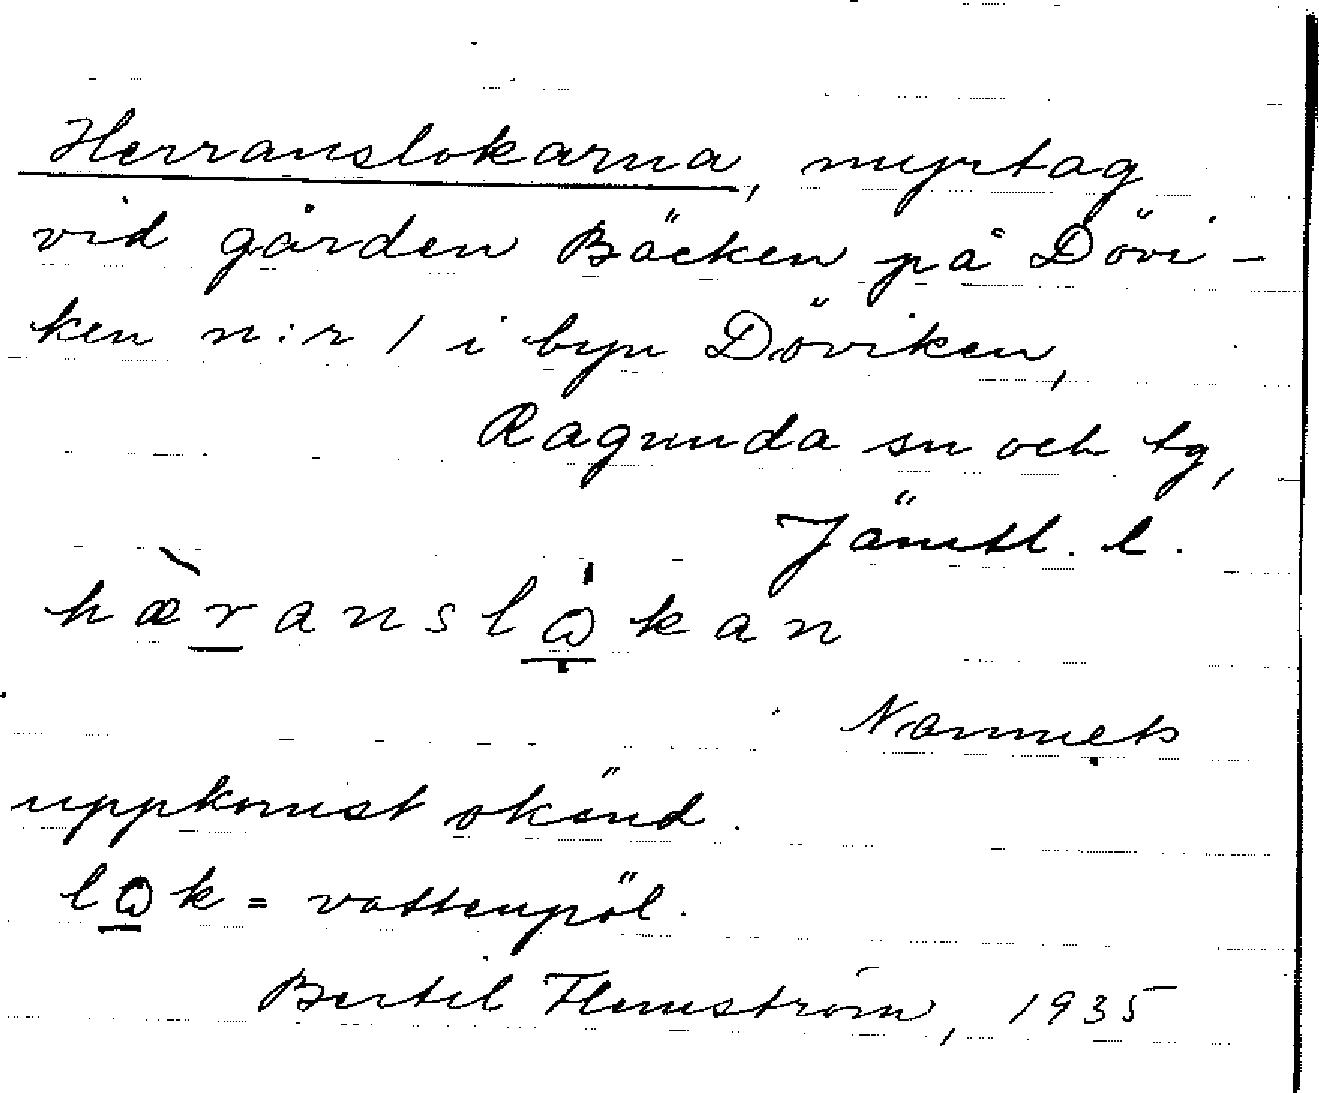 Herranslokarna, myrtag
vid gården Bäcken på Dövi-
ken n:r 1 i byn Döviken,
Ragunda sn och tg,
Jämtl. l.
hæ̀r̲anslɷ̲kan
Namnets
uppkomst okänd.
lɷ̲k = vattenpöl.
Bertil Flemström, 1935